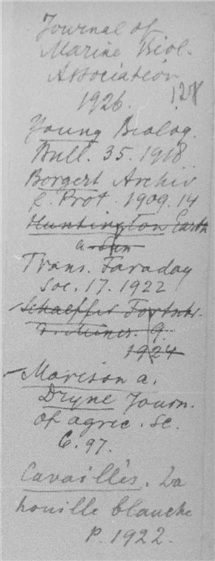 Journal of
Marine Biol.
Association
1926.
128
Young Biolog.
Bull. 35. 1918
Borgert Archiv
f. Prot. 1909. 14
Huntington Earth
a. Sun
Trans. Faraday
Soc. 17. 1922
9.
1924
Morison a.
Journ.
of agric. Sc.
6. 97.
Cavaillès. La
houille blanche
p. 1922.